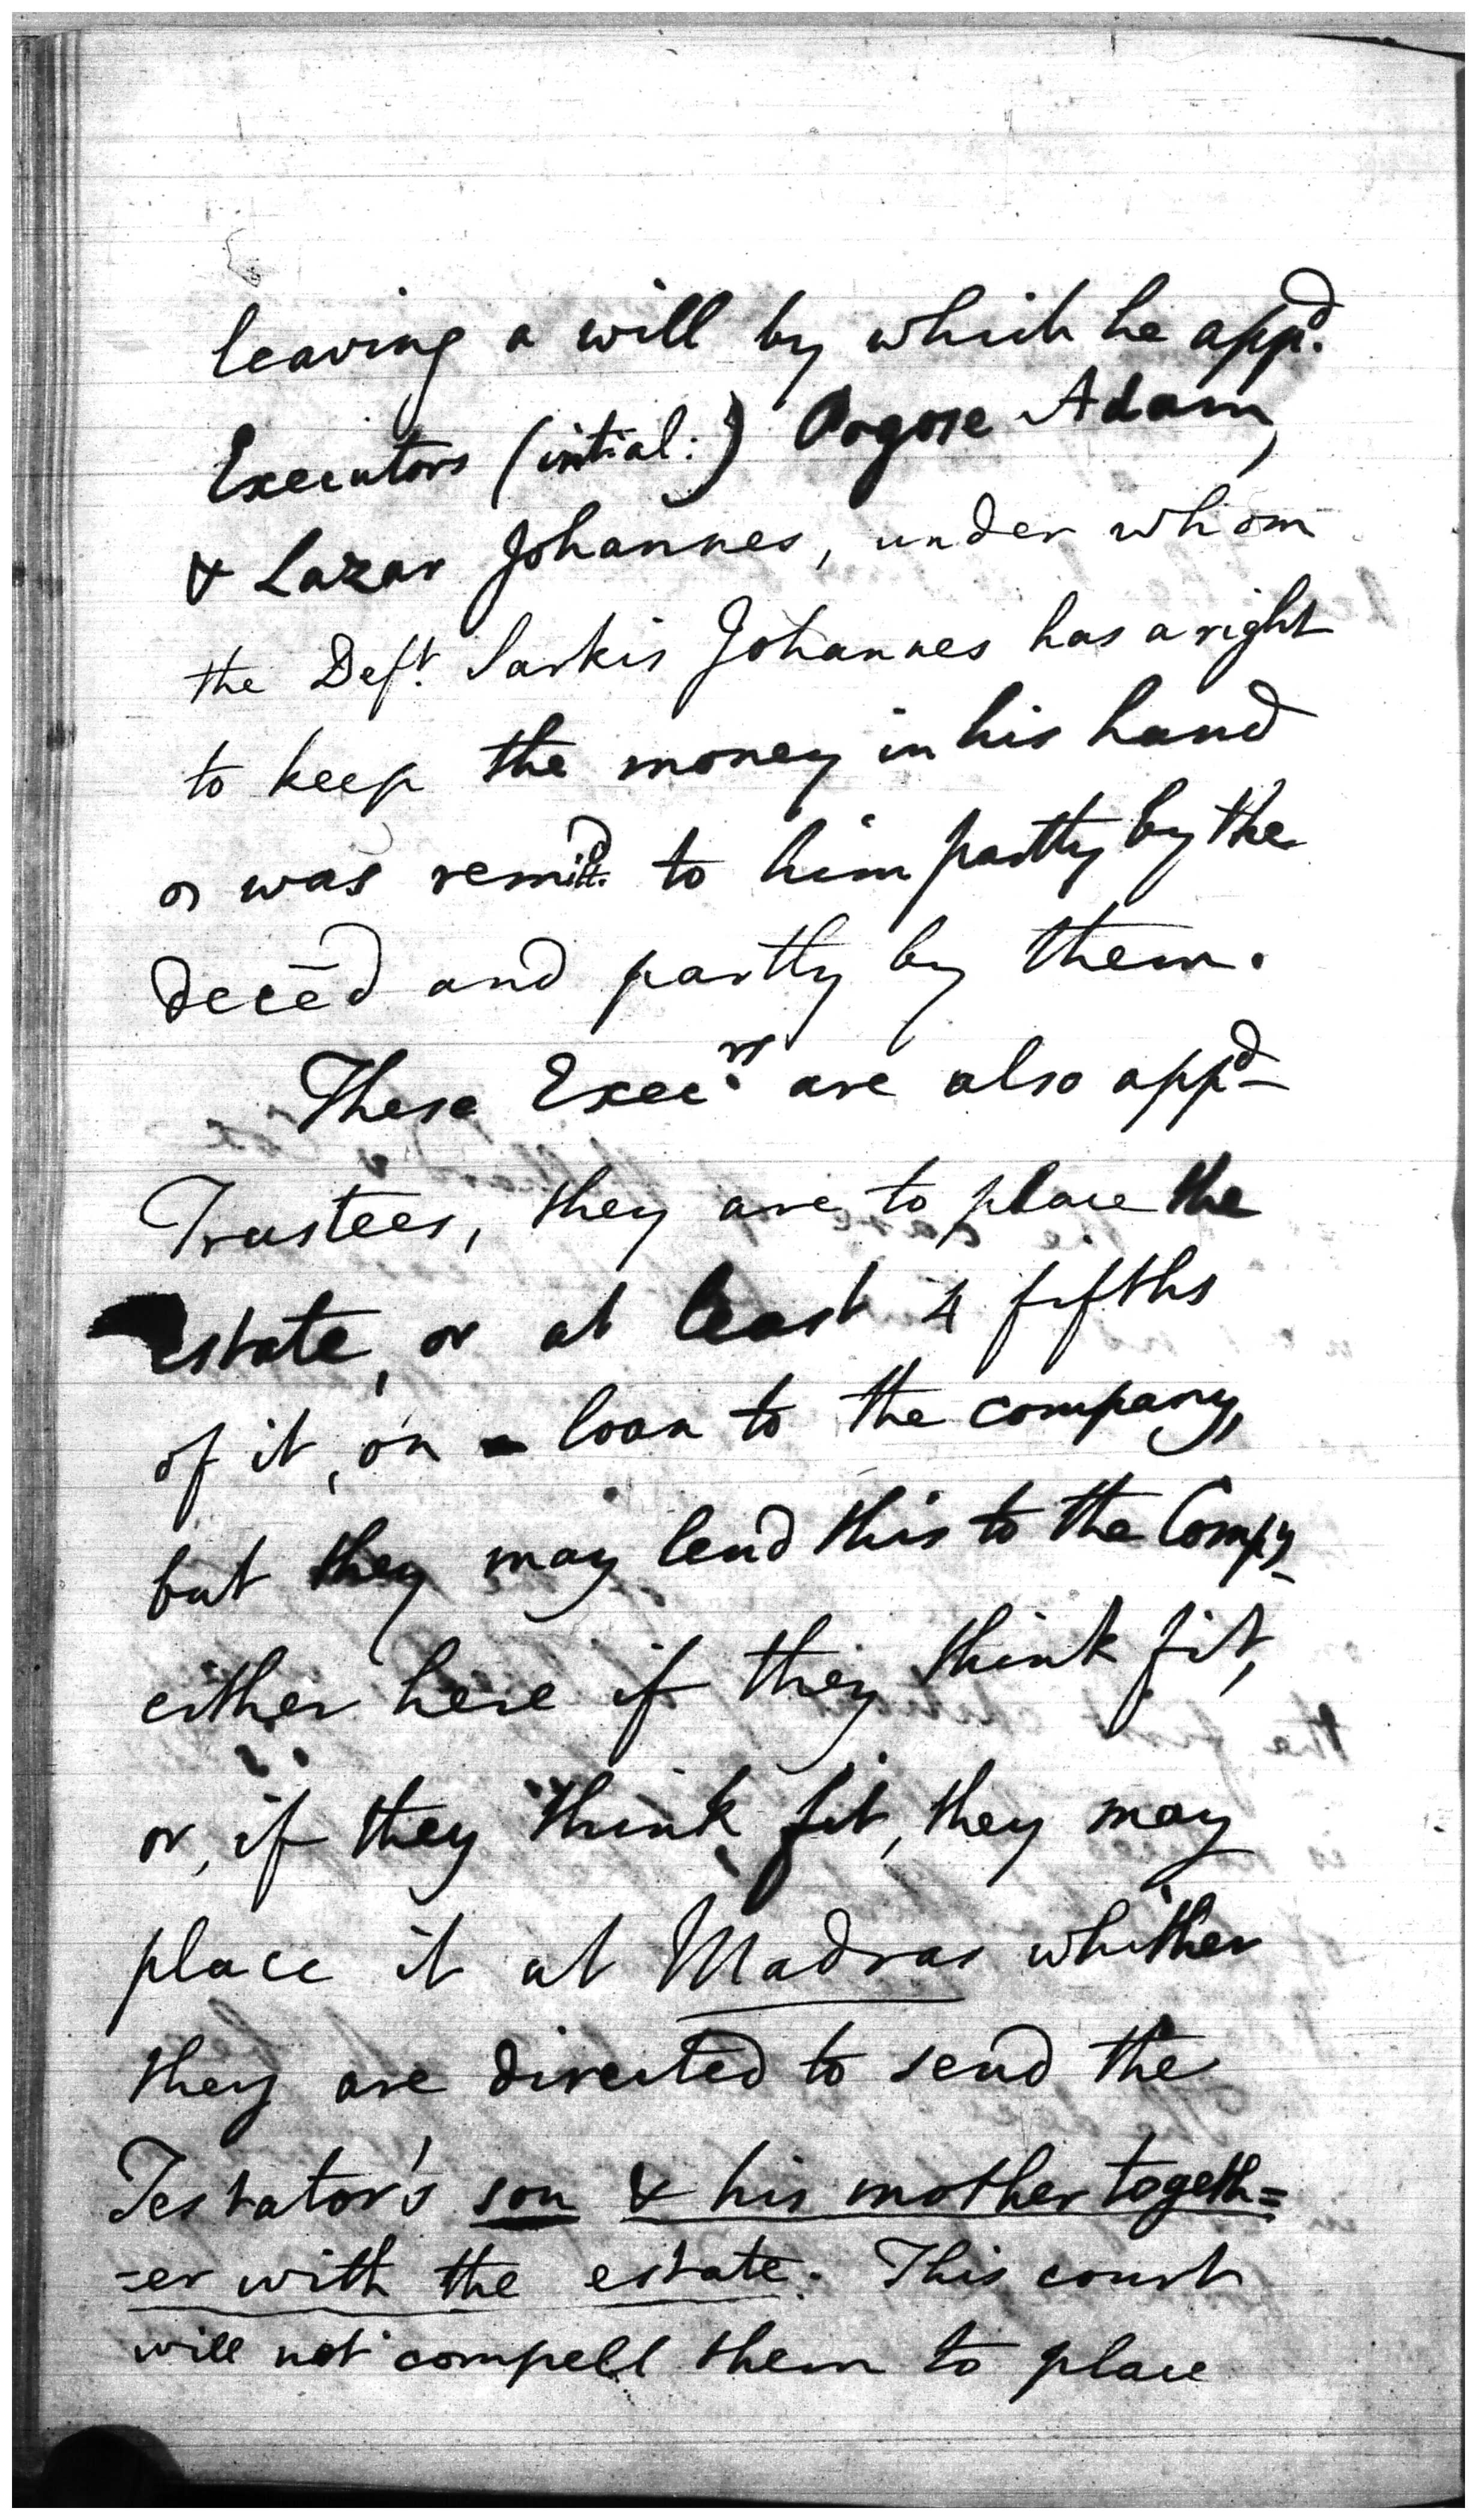 leaving a will by which he appd.
Executors (intial:) Orgose Adam,
& Lazar Johannes, under whom
the Deft. Sarkis Johannes has a right
to keep the money in his hand
or was remittd. to him partly by the
decēd and partly by them.
These Execrs. are also appd
Trustees, they are to place the
estate, or at least 4 fifths
of it, on loan to the company,
but they may lend this to the Compy
either here if they think fit,
or, if they think fit, they may
place it at Madras whither
they are directed to send the
Testator's son & his mother togeth=
-er with the estate. This court
will not compell them to place